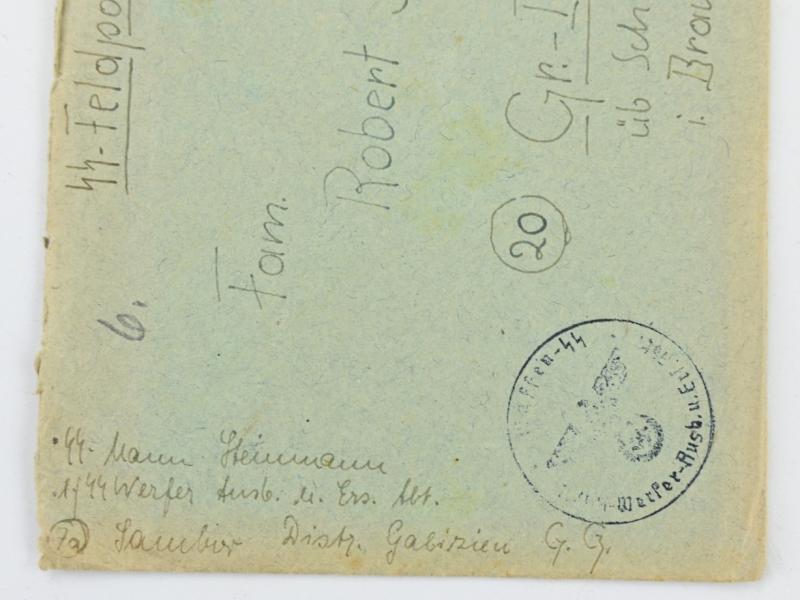 SS-Feldpo
Fam.
Robert
Gr.-
üb Sch
i. Brau
20
6.
Waffen-SS
Werfer-Ausb. u. Ers.
SS-Mann Steinmann
1/SS Werfer Ausb. u. Ers. Abt.
7a Sambor Distr. Galizien G. G.